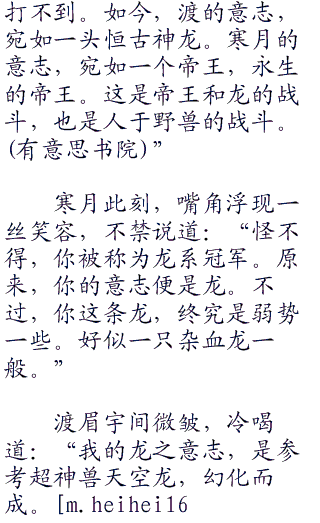 打不到。如今，渡的意志，
宛如一头恒古神龙。寒月的
意志，宛如一个帝王，永生
的帝王。这是帝王和龙的战
斗，也是人于野兽的战斗。
(有意思书院)”
寒月此刻，嘴角浮现一
丝笑容，不禁说道：“怪不
得，你被称为龙系冠军。原
来，你的意志便是龙。不
过，你这条龙，终究是弱势
一些。好似一只杂血龙一
般。”
渡眉宇间微皱，冷喝
道：“我的龙之意志，是参
考超神兽天空龙，幻化而
成。[m.heihei16